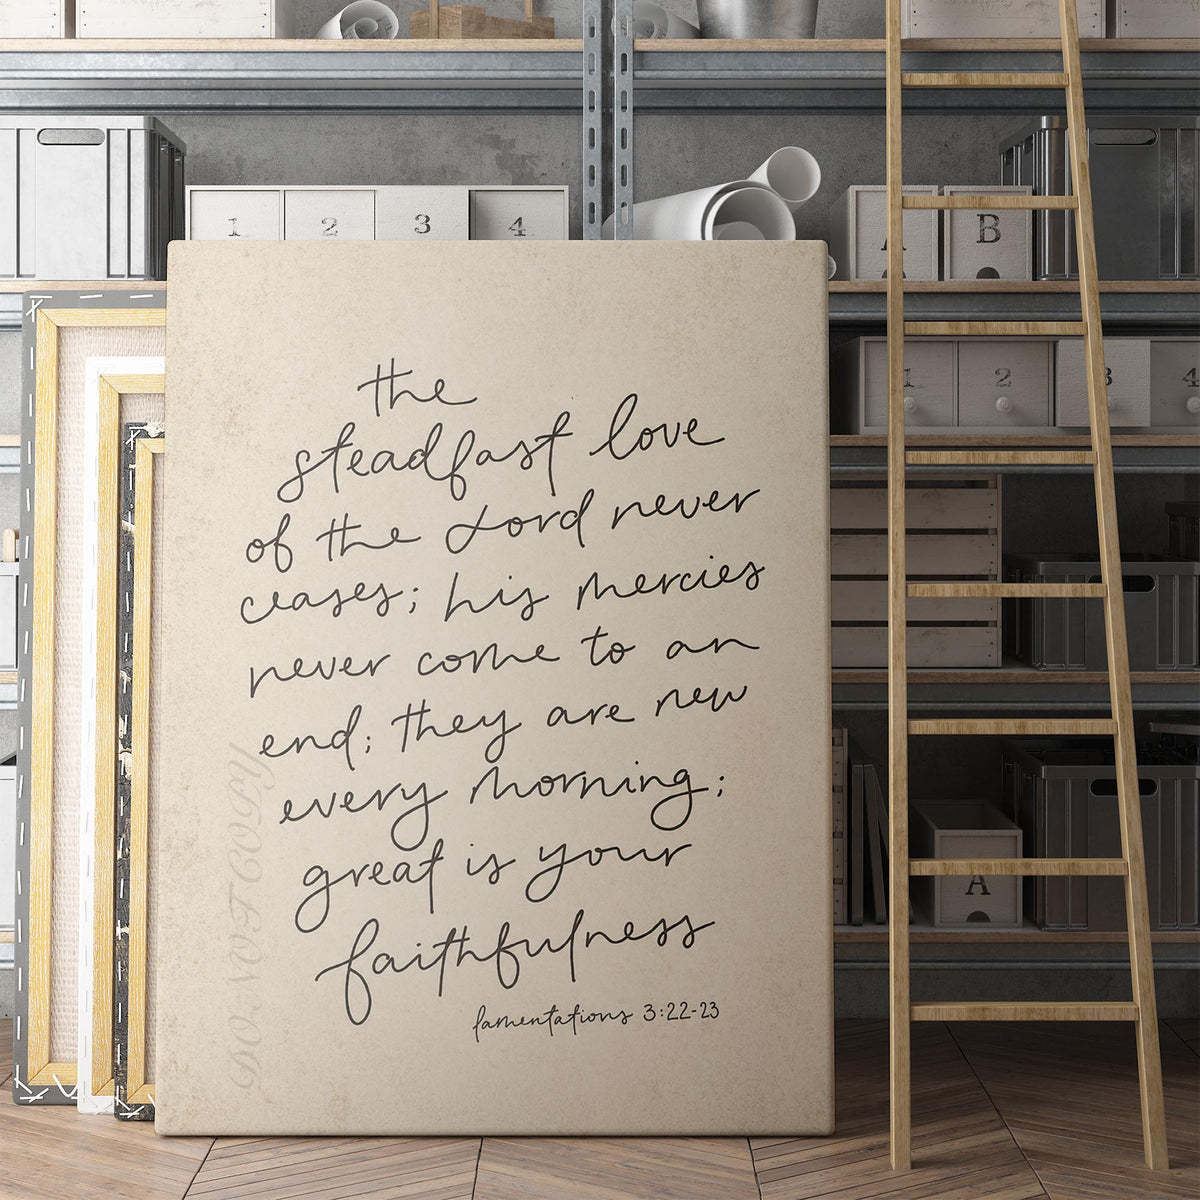 1
2
3
4
A
B
1
2
3
4
the
steadfast love
of the Lord never
ceases; his mercies
never come to an
end; they are new
every morning;
great is your
faithfulness
lamentations 3:22-23
DO NOT COPY
A